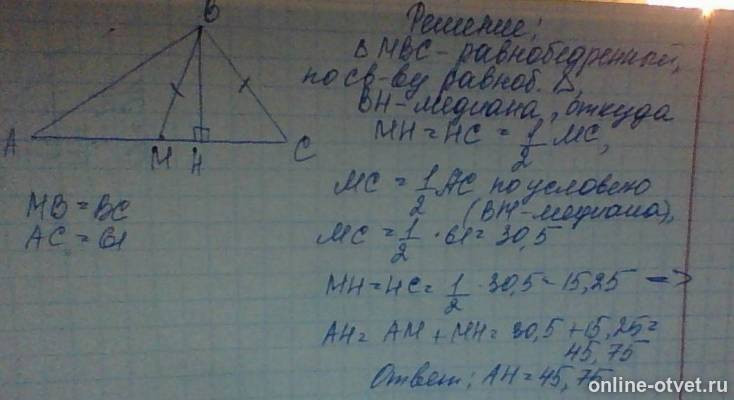 B
A
M
H
C
MB = BC
AC = 61
Решение:
Δ MBC - равнобедренный,
по св-ву равноб. Δ,
BH - медиана, откуда
MH = HC = 1/2 MC,
MC = 1/2 AC по условию
(BM - медиана),
MC = 1/2 · 61 = 30,5
MH = HC = 1/2 · 30,5 = 15,25 =>
AH = AM + MH = 30,5 + 15,25 =
45,75
Ответ: AH = 45,75
online-otvet.ru